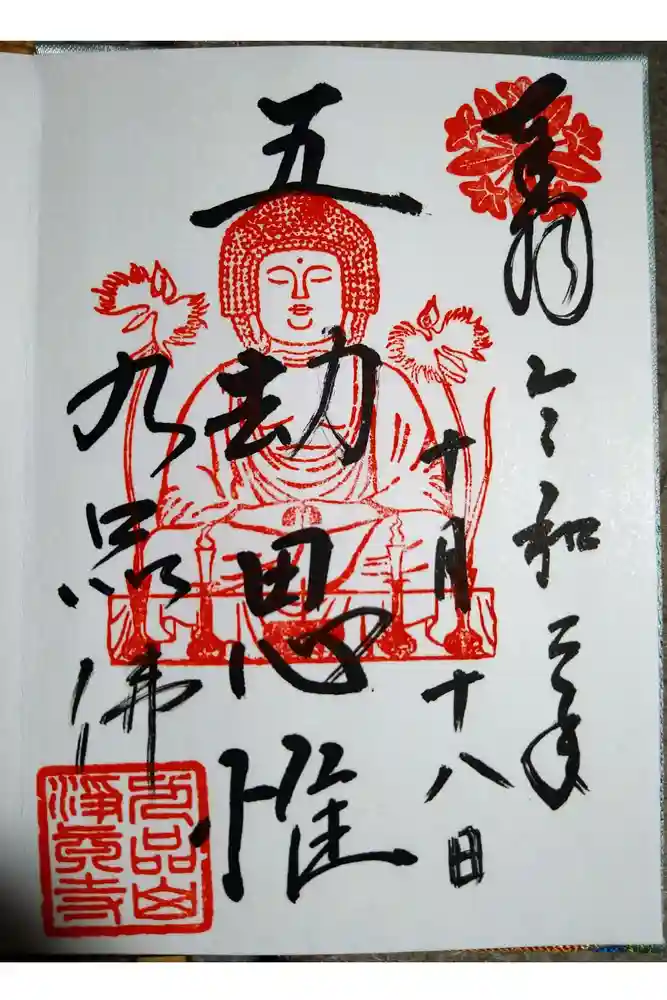 奉拝
令和三年
十月十八日
五劫思惟
九品佛
九品山
淨真寺